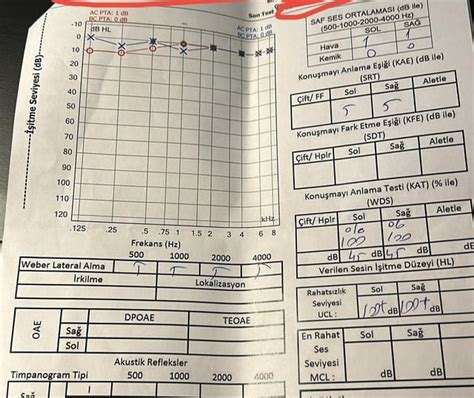 AC PTA: 1 dB
BC PTA: 0 dB
AC PTA: 1 dB
BC PTA: 0 dB
Son Test
dB HL
-10
0
10
20
30
40
50
60
70
80
90
100
110
120
İşitme Seviyesi (dB)
kHz
.125 .25 .5 .75 1 1.5 2 3 4 6 8
Frekans (Hz)
500 1000 2000 4000
Weber Lateral Alma
İrkilme Lokalizasyon
OAE
DPOAE TEOAE
Sağ
Sol
Akustik Refleksler
Timpanogram Tipi I 500 1000 2000 4000
Sağ
SAF SES ORTALAMASI (dB ile)
(500-1000-2000-4000 Hz)
SOL SAĞ
Hava 1 1
Kemik 0 0
Konuşmayı Anlama Eşiği (KAE) (dB ile)
(SRT)
Çift/ FF Sol Sağ Aletle
5 5
Konuşmayı Fark Etme Eşiği (KFE) (dB ile)
(SDT)
Çift/ Hplr Sol Sağ Aletle
Konuşmayı Anlama Testi (KAT) (% ile)
(WDS)
Çift/ Hplr Sol Sağ Aletle
% %
100 100
dB 45 dB 45 dB dB
Verilen Sesin İşitme Düzeyi (HL)
Rahatsızlık
Seviyesi
UCL :
Sol Sağ
100+ dB 100+ dB
En Rahat
Ses
Seviyesi
MCL :
Sol Sağ
dB dB